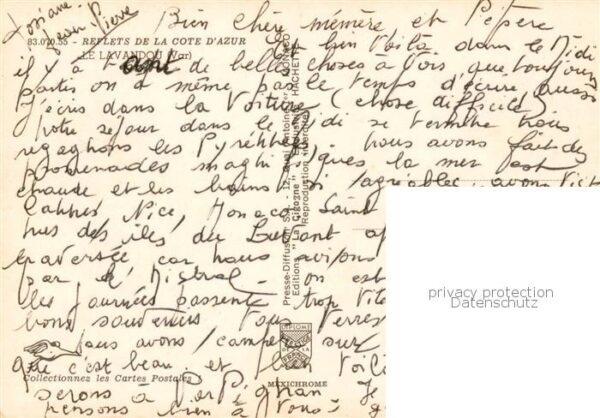 Josiane
Jean Pierre
Bien chère mémère et Pépère
83.070.55 - REFLETS DE LA COTE D'AZUR
LE LAVANDOU (Var)
eh bien voilà dans le Midi
il y a tant de belles choses à voir que toujours
partis on a même pas le temps d'écrire aussi
j'écris dans la voiture (chose difficile)
votre séjour dans le Midi se termine nous
regagnons les Pyrénées. nous avons fait des
promenades magnifiques la mer est
chaude et les bains si agréables avons
Cannes Nice, Monaco Saint
des îles du Levant
traversée car nous avions
par le Mistral on est
les journées passent trop
bons souvenirs Vous verrez
nous avons campé sur
que c'est beau et
Collectionnez les Cartes Postales
serons à Perpignan Je
pensons bien à vous
Presse-Diffusion
Editions "La Cigogne"
HACHETTE
Reproduction
DIPLOME
MEXICHROME
privacy protection
Datenschutz